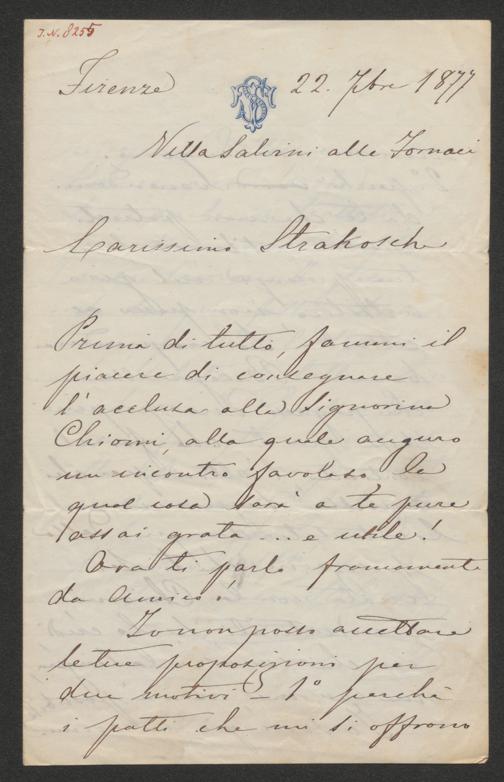 J.N. 8255
Firenze 22. 7bre 1877
Villa Salvini alle Fornaci
Carissimo Strakosch
Prima di tutto, fammi il
piacere di consegnare
l'acclusa alla Signorina
Chiomi, alla quale auguro
un incontro favoloso, la
qual cosa sarà a te pure
assai grata... e utile!
Ora ti parlo francamente
da amico!
Io non posso accettare
le tue proposizioni per
due motivi – 1º perchè
i patti che mi si offrono